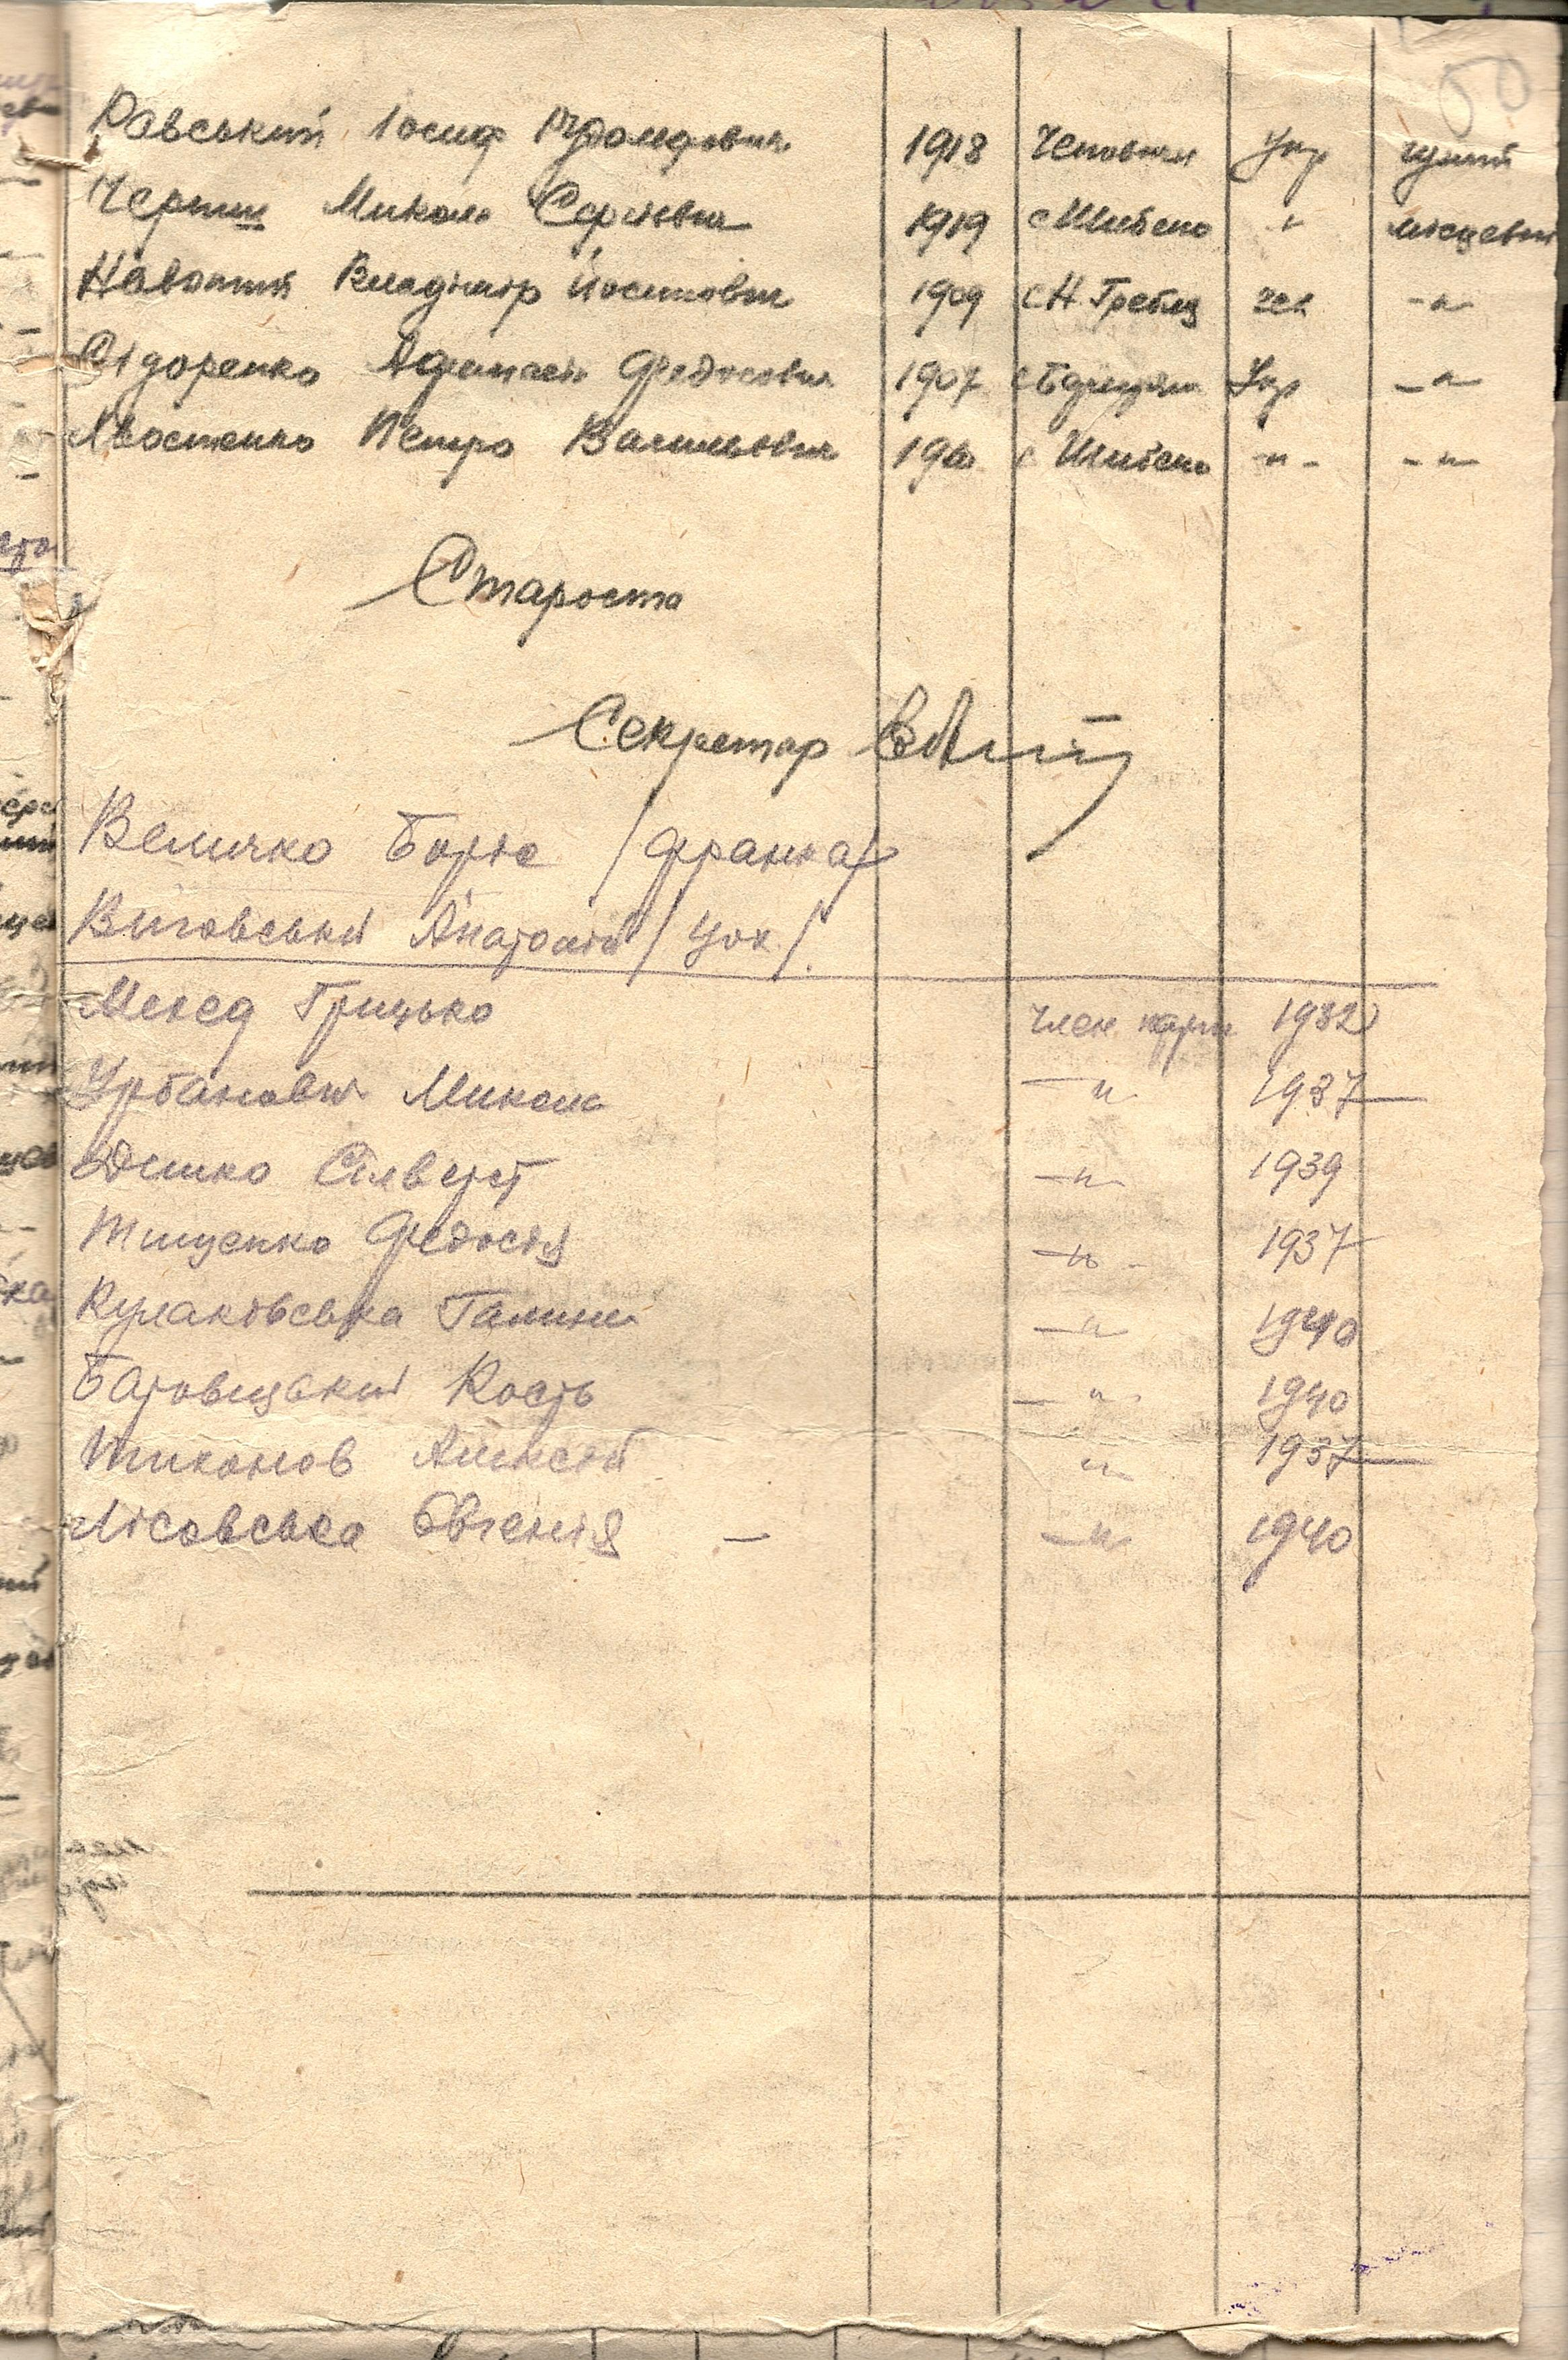 Равський Іосиф Рудольфович 1918 Чеповичі Укр чужий
Черниш Микола Сергієвич 1919 с Шибено " місцевий
Навотний Владімір Йосипович 1909 с Н. Гребля чех -"-
Сідоренко Афанасій Федосович 1907 Укр -"-
Хвостенко Петро Васильович с Шибено -"- -"-
Староста
Секретар
Величко Боріс /франка/
Виговський Анатолій / Цох /.
Мехед Грицько Член парт 1932
Урбанович Микола -"- 1937
Дишко Сілвестр -"- 1939
Тищенко Федосія -"- 1937
Кулаковська Галина -"- 1940
Кость -"- 1940
Тихонов Алексей " 1937
Лісовська Євгенія - -"- 1940